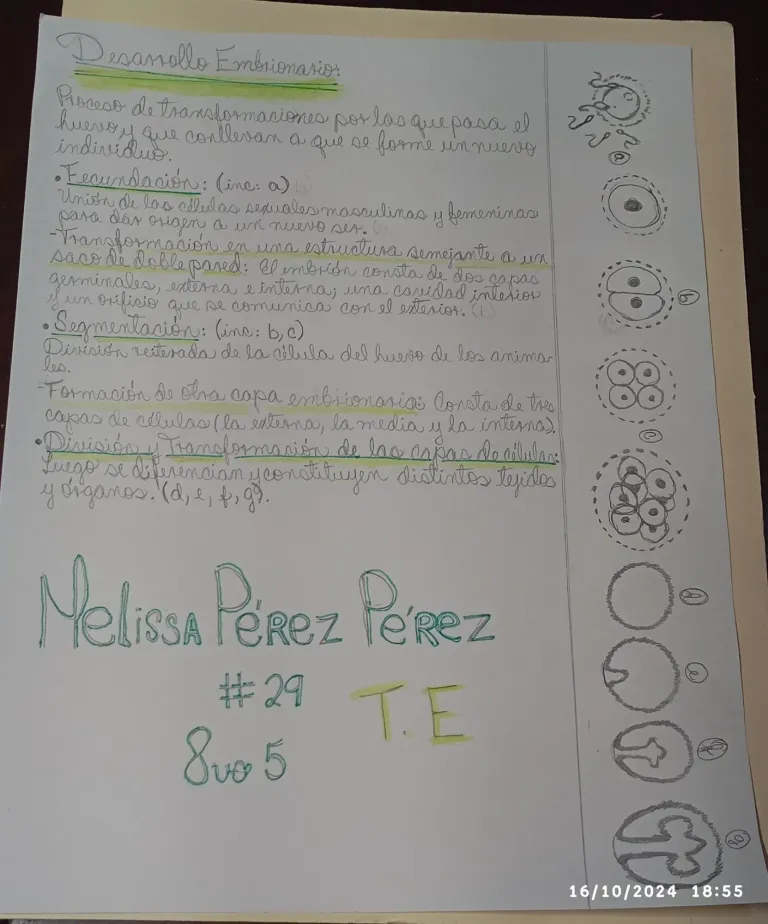 Desarrollo Embrionario:
Proceso de transformaciones por las que pasa el
huevo y que conllevan a que se forme un nuevo
individuo.
• Fecundación: (inc: a)
Unión de las células sexuales masculinas y femeninas
para dar origen a un nuevo ser.
-Transformación en una estructura semejante a un
saco de doble pared: El embrión consta de dos capas
germinales, externa e interna; una cavidad interior
y un orificio que se comunica con el exterior.
• Segmentación: (inc: b, c)
División reiterada de la célula del huevo de los anima-
les.
-Formación de otra capa embrionaria: Consta de tres
capas de células (la externa, la media y la interna).
• División y Transformación de las capas de células:
Luego se diferencian y constituyen distintos tejidos
y órganos. (d, e, f, g).
Melissa Pérez Pérez
#29
T.E
8vo 5
a
b
c
d
e
f
g
16/10/2024 18:55